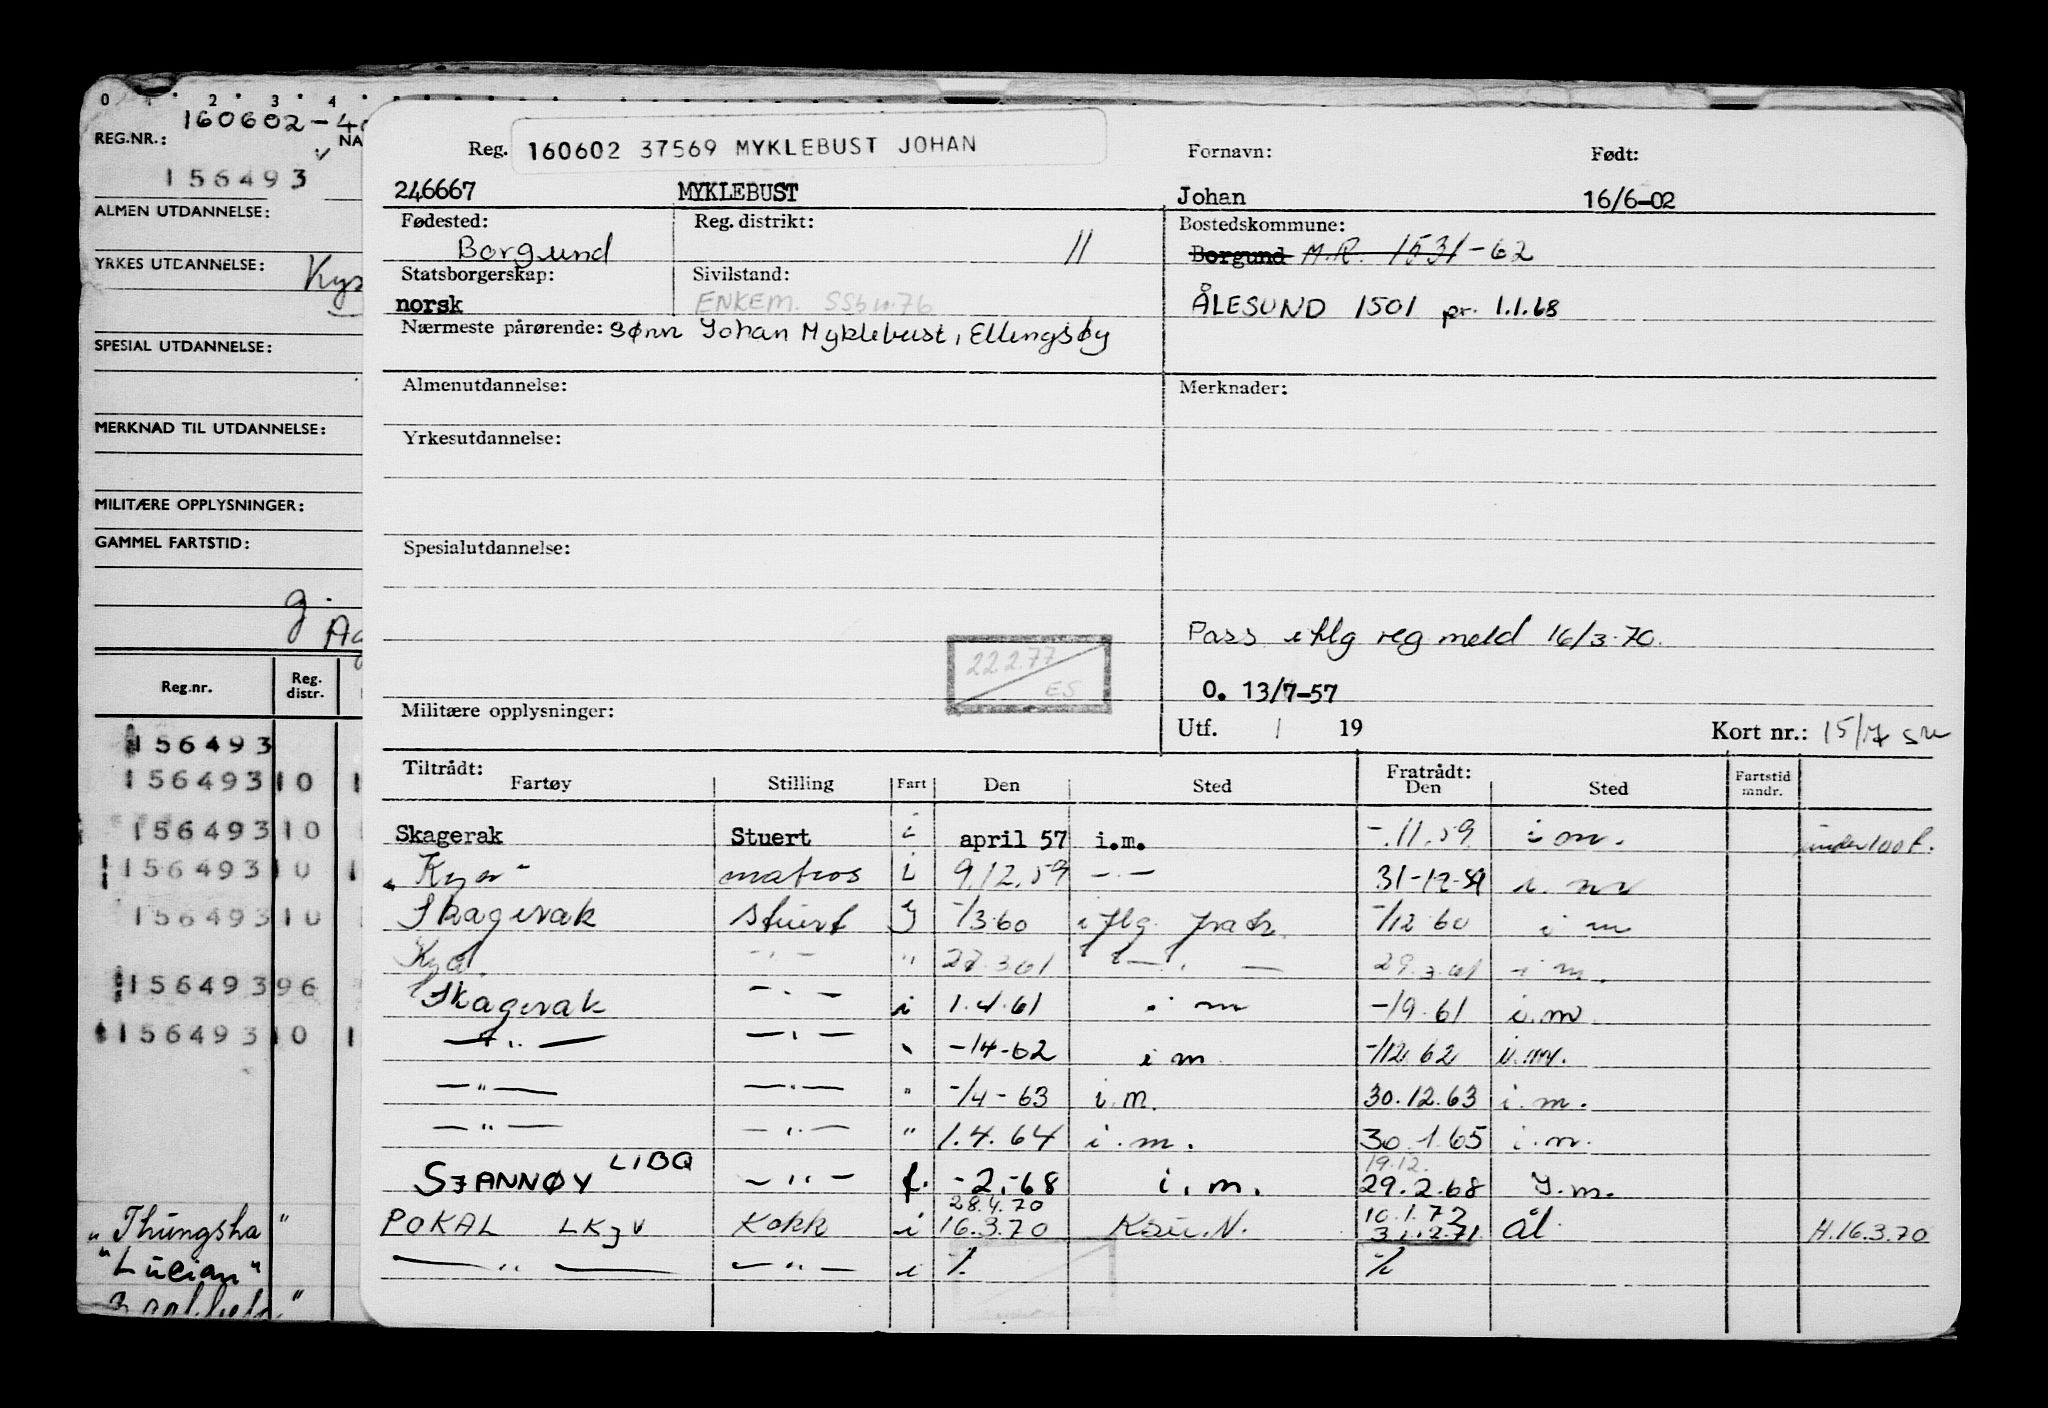 0 1 2 3 4
160602-40
REG.NR.:
NA
156493
ALMEN UTDANNELSE:
YRKES UTDANNELSE:
SPESIAL UTDANNELSE:
MERKNAD TIL UTDANNELSE:
MILITÆRE OPPLYSNINGER:
GAMMEL FARTSTID:
g.
Reg.nr. Reg. distr.
156493
156493 10 1
156493 10
156493 10 1
156493 10
156493 96
156493 10 1
"Thungsha"
"Lucian"
Reg. 160602 37569 MYKLEBUST JOHAN
Fornavn: Født:
246667 MYKLEBUST Johan 16/6-02
Fødested: Reg. distrikt: Bostedskommune:
Borgund 11 Borgund M.R. 1531-62
Statsborgerskap: Sivilstand:
norsk ENKEM. SSB n.76 ÅLESUND 1501 pr. 1.1.68
Nærmeste pårørende: sønn Johan Myklebust, Ellingsøy
Almenutdannelse: Merknader:
Yrkesutdannelse:
Spesialutdannelse:
Pass iflg reg meld 16/3-70.
22.2.77
ES
O. 13/7-57
Militære opplysninger: Utf. / 19 Kort nr.: 15/7
Tiltrådt: Fratrådt:
Fartøy Stilling Fart Den Sted Den Sted Fartstid mndr.
Skagerak Stuert i april 57 i.m. -.11.59 i m. under 100 t.
matros i 9.12.59 -"- 31-12-59 i. m
Skagerak Stuert -/3-60 i flg. -/12 60 i m
-"- " 27.3.61 -"- 29.3.61 i m.
Skagerak -"- i 1.4.61 i m -/9-61 i.m.
-"- -"- " -/4-62 i m. -/12.62 i.m.
-"- -"- " -/4-63 i.m. 30.12.63 i.m.
-"- -"- " 1.4.64 i.m. 30.1.65 i.m.
19.12.
LIBQ -"- f. -2.-68 i.m. 29.2.68 I.m.
28.4.70 10.1.72
POKAL LKJV Kokk i 16.3.70 Ål H.16.3.70
-"- -"- i %. %